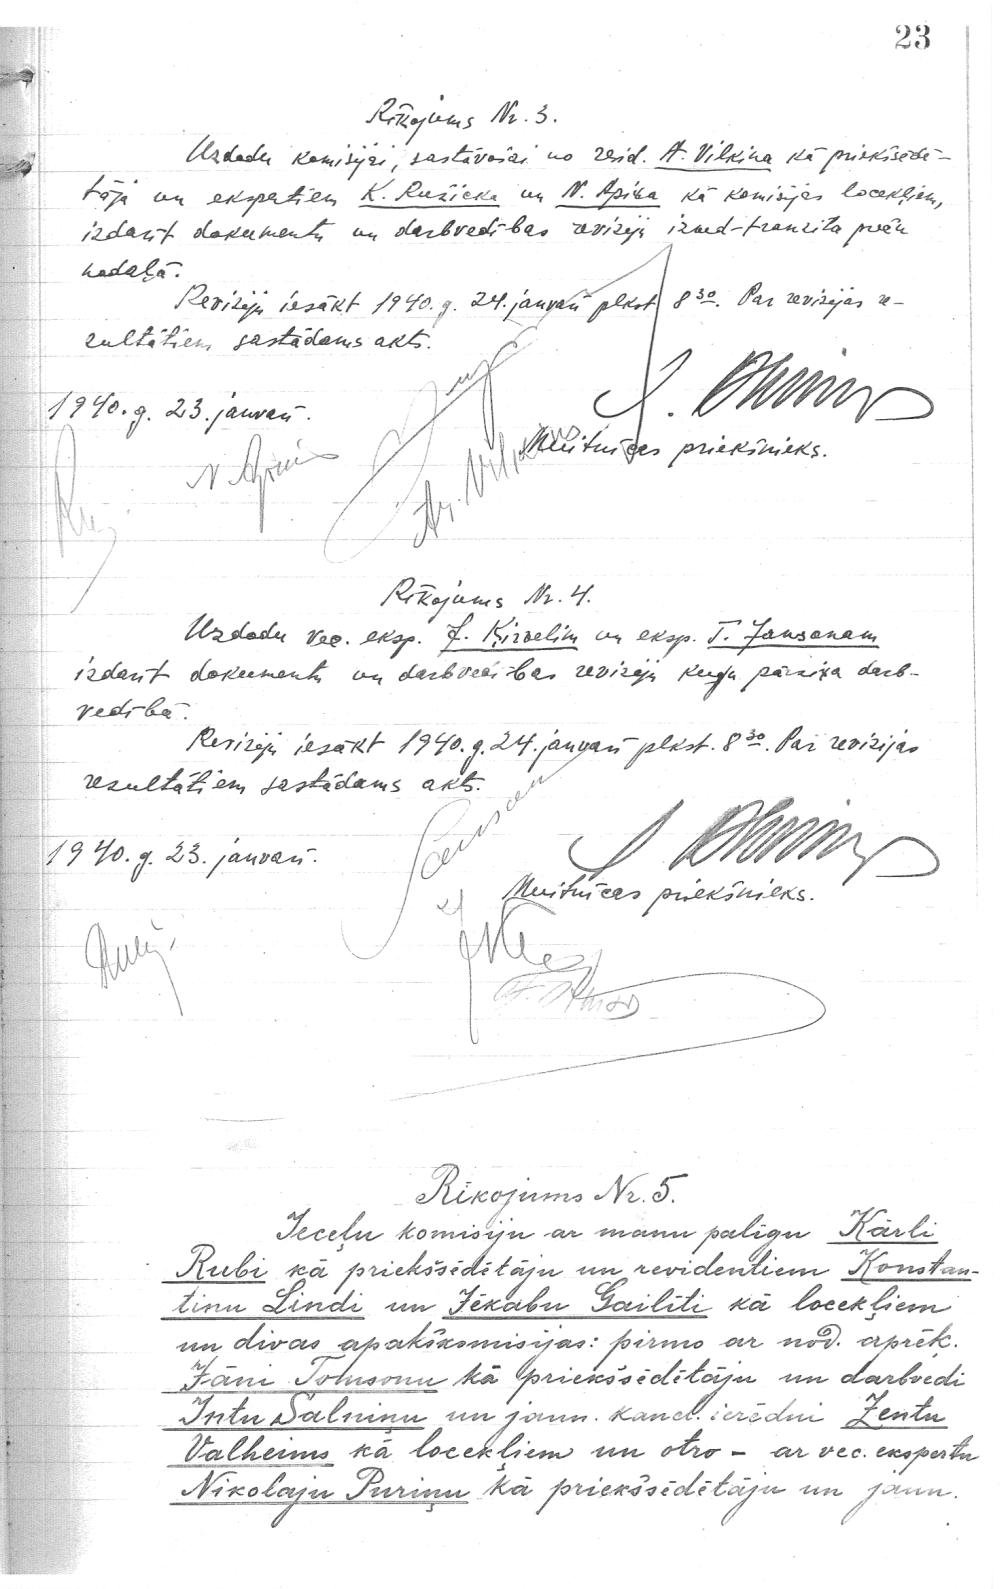 23
Rīkojums Nr. 3.
Uzdodu komisijai, sastāvošai no resid. A. Vilkina kā priekšsēdē-
tāja un ekspertiem K. Ružicka un N. Apiņa kā komisijas locekļiem,
izdarīt dokumentu un darbvedības revīziju izved-tranzita preču
nodaļā.
Revīziju iesākt 1940. g. 24. janvarī plkst. 8 30. Par revizijas re-
zultātiem sastādams akts.
1940. g. 23. janvarī.
Muitnīcas priekšnieks.
N. Apinis
Ar. Vilkins
Rīkojums Nr. 4.
Uzdodu vec. eksp. J. Ķirzelim un eksp. T. Jansonam
izdarīt dokumentu un darbvedības reviziju kuģu pārziņa darb-
vedībā.
Reviziju iesākt 1940. g. 24. janvarī plkst. 8 30. Par revizijas
rezultātiem sastādams akts.
1940. g. 23. janvarī.
Muitnīcas priekšnieks.
Rīkojums Nr. 5.
Ieceļu komisiju ar manu palīgu Kārli
Rubi kā priekšsēdētāju un revidentiem Konstan-
tinu Lindi un Jēkabu Gailīti kā locekļiem
un divas apakškomisijas: pirmo ar nod. aprēķ.
Jāni Tomsonu kā priekšsēdētāju un darbvedi
Intu Salniņu un jaun. kancl. ierēdni Zentu
Valheims kā locekļiem un otro – ar vec. ekspertu
Nikolaju Puriņu kā priekšsēdētāju un jaun.